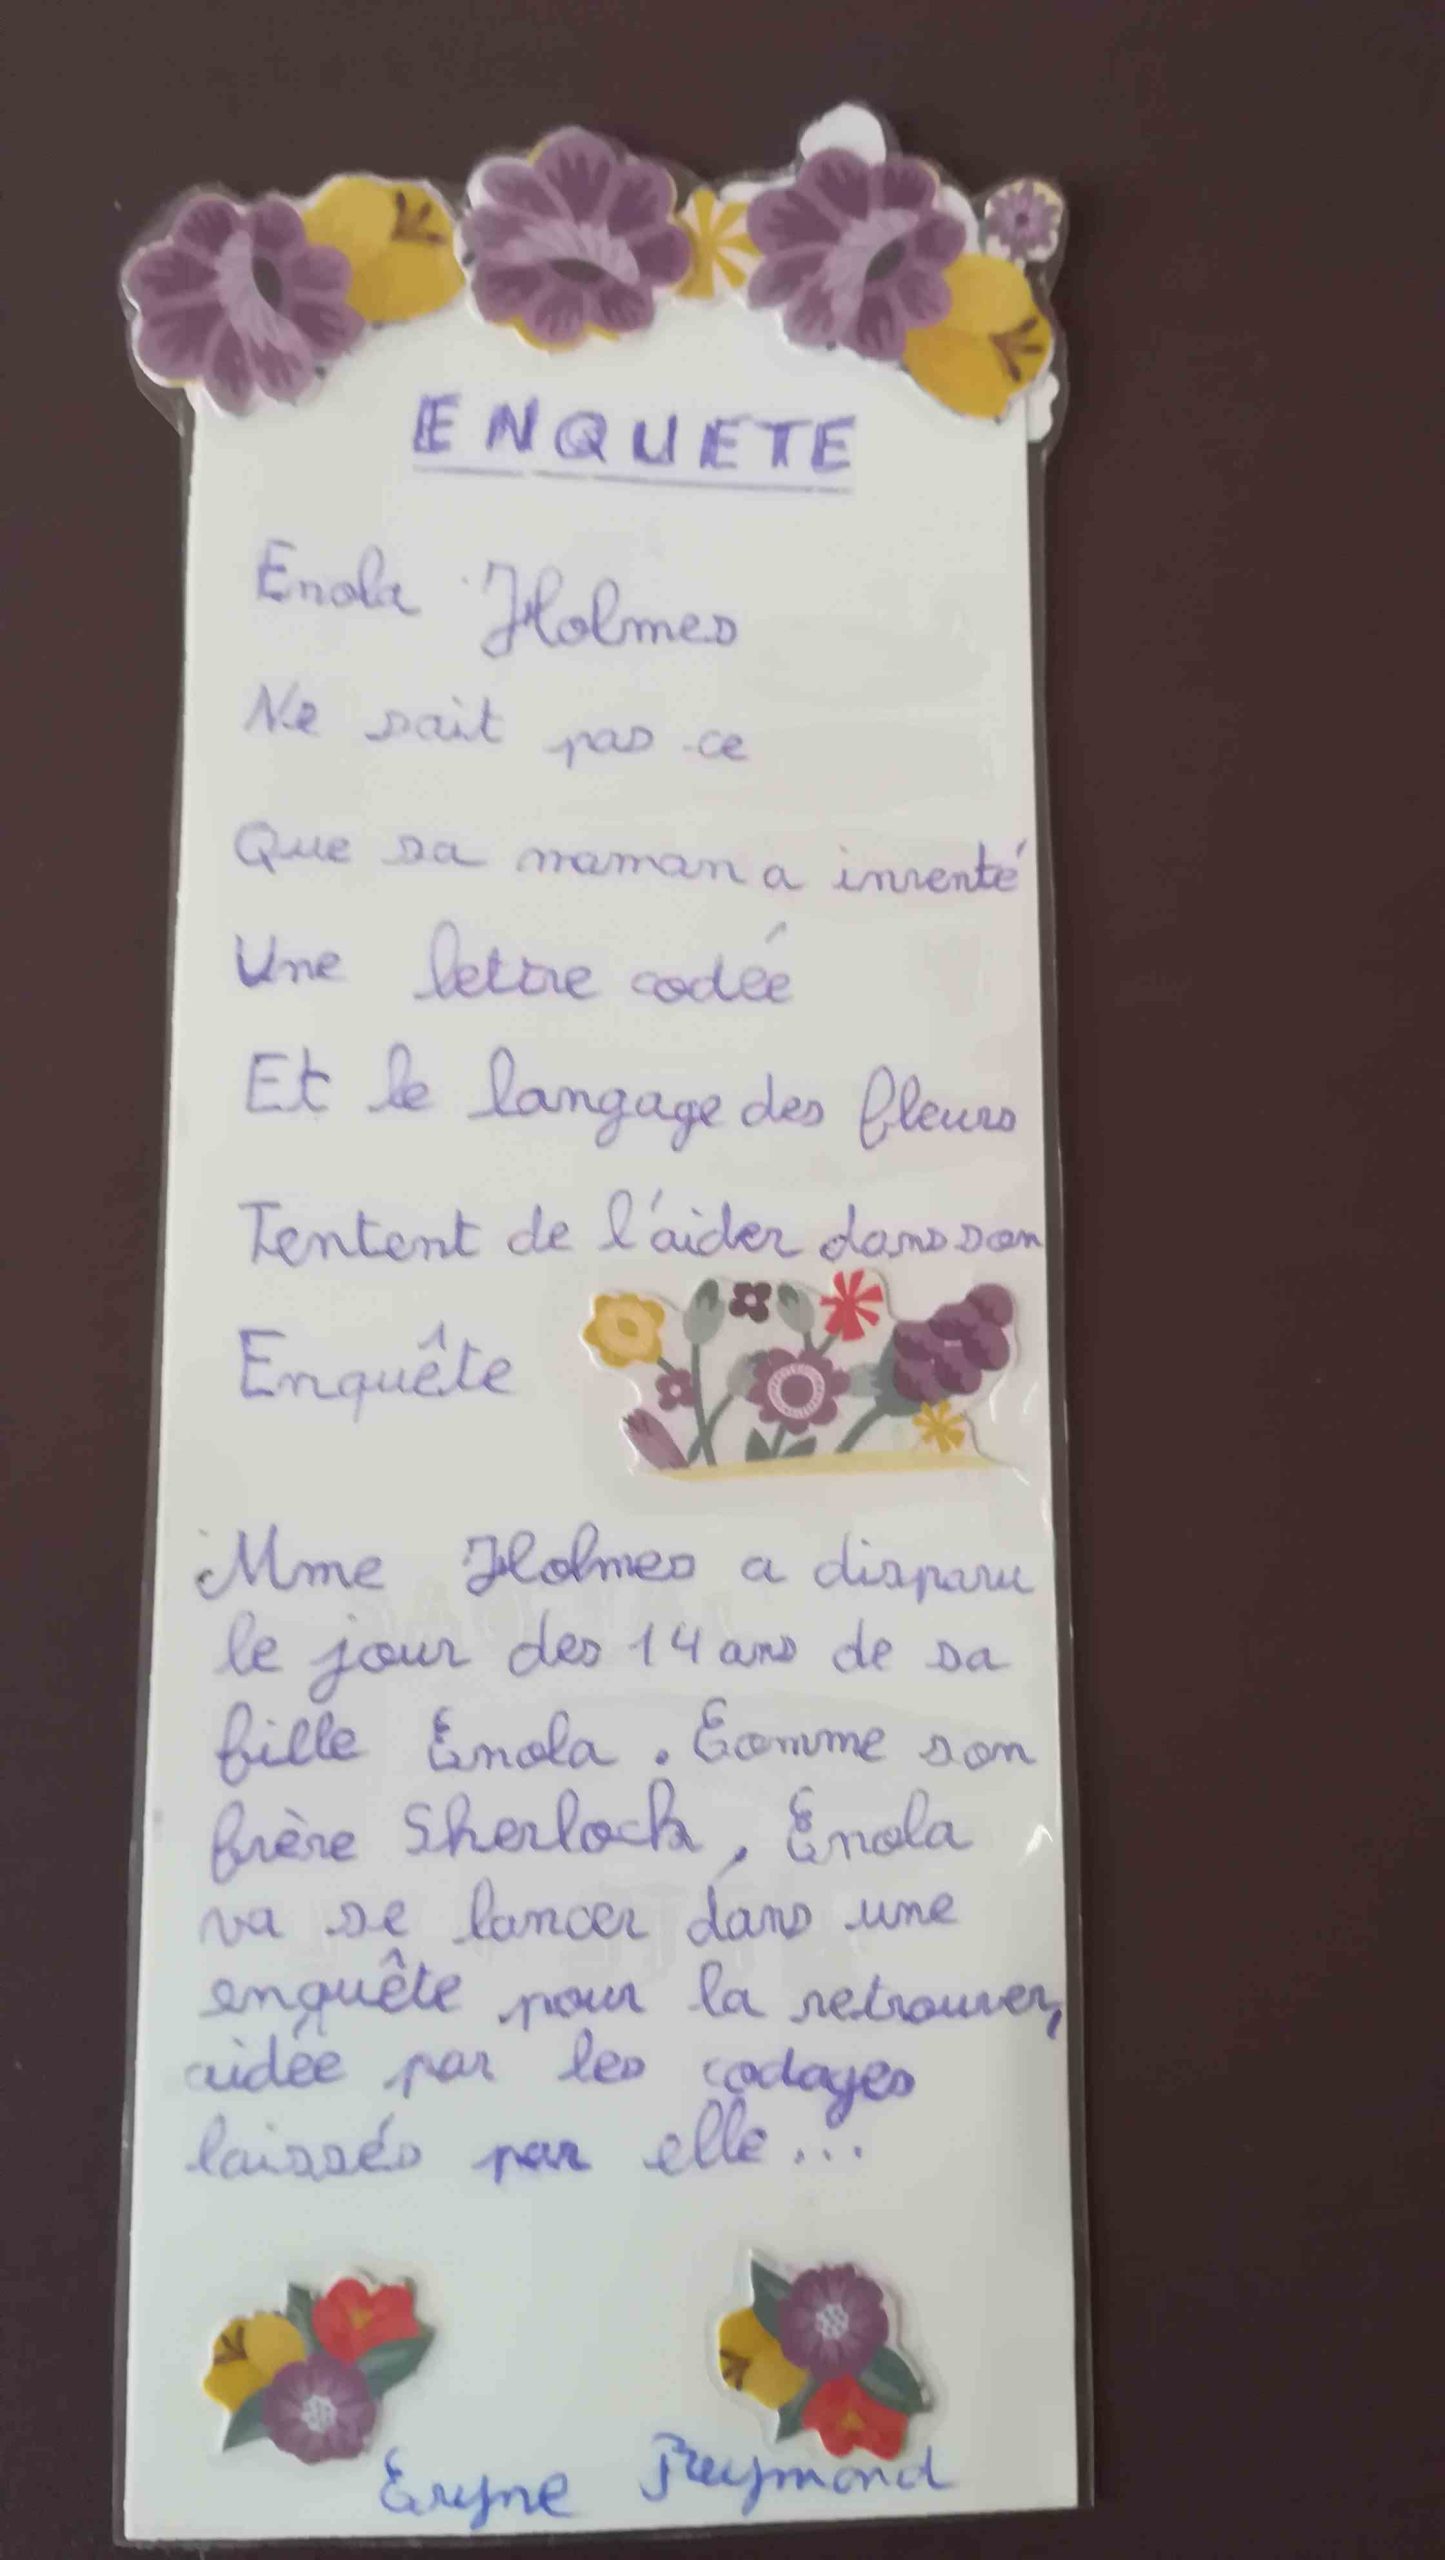 ENQUETE
Enola Holmes
Ne sait pas ce
Que sa maman a inventé
Une lettre codée
Et le langage des fleurs
Tentent de l'aider dans son
Enquête
Mme Holmes a disparu
le jour des 14 ans de sa
fille Enola. Comme son
frère Sherlock, Enola
va se lancer dans une
enquête pour la retrouver,
aidée par les codages
laissés par elle...
Eryne